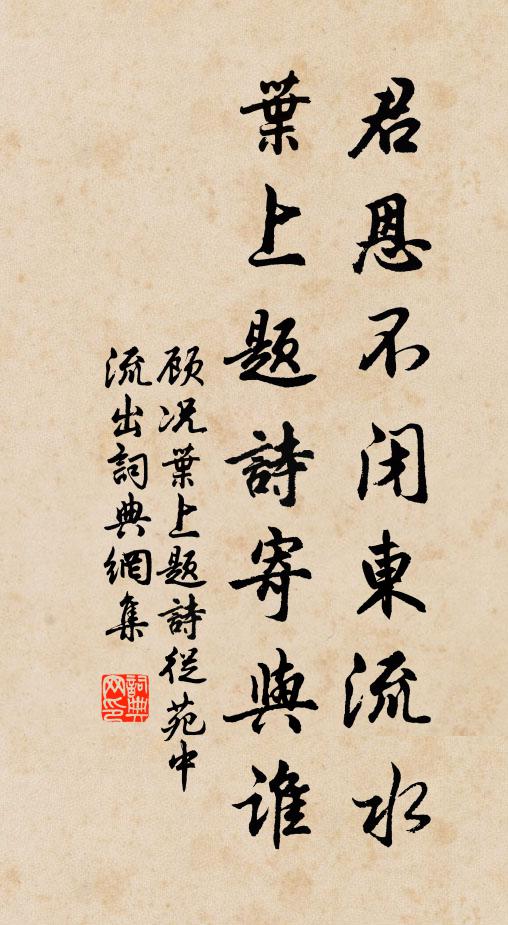 君恩不闭東流水
葉上題詩寄與誰
顾况葉上題詩從苑中
流出詞典網集
詞典
网印